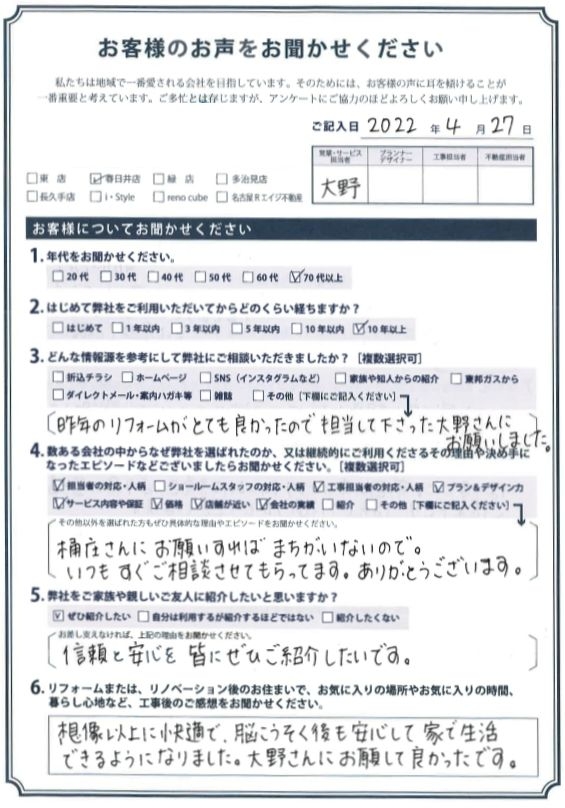 お客様のお声をお聞かせください
私たちは地域で一番愛される会社を目指しています。そのためには、お客様の声に耳を傾けることが
一番重要と考えています。ご多忙とは存じますが、アンケートにご協力のほどよろしくお願い申し上げます。
ご記入日 2022 年 4 月 27 日
営業・サービス担当者 プランナーデザイナー 工事担当者 不動産担当者
大野
□東 店 ☑春日井店 □緑 店 □多治見店
□長久手店 □i・Style □reno cube □名古屋Rエイジ不動産
お客様についてお聞かせください
1. 年代をお聞かせください。
□20代 □30代 □40代 □50代 □60代 ☑70代以上
2. はじめて弊社をご利用いただいてからどのくらい経ちますか？
□はじめて □1年以内 □3年以内 □5年以内 □10年以内 ☑10年以上
3. どんな情報源を参考にして弊社にご相談いただきましたか？［複数選択可］
□折込チラシ □ホームページ □SNS（インスタグラムなど） □家族や知人からの紹介 □東邦ガスから
□ダイレクトメール・案内ハガキ等 □雑誌 □その他（下欄にご記入ください）
昨年のリフォームがとても良かったので担当して下さった大野さんに
お願いしました。
4. 数ある会社の中からなぜ弊社を選ばれたのか、又は継続的にご利用くださるその理由や決め手に
なったエピソードなどございましたらお聞かせください。［複数選択可］
☑担当者の対応・人柄 □ショールームスタッフの対応・人柄 ☑工事担当者の対応・人柄 ☑プラン＆デザイン力
☑サービス内容や保証 ☑価格 ☑店舗が近い ☑会社の実績 □紹介 □その他［下欄にご記入ください］
その他以外を選ばれた方もぜひ具体的な理由やエピソードをお聞かせください。
桶庄さんにお願いすればまちがいないので。
いつもすぐご相談させてもらってます。ありがとうございます。
5. 弊社をご家族や親しいご友人に紹介したいと思いますか？
☑ぜひ紹介したい □自分は利用するが紹介するほどではない □紹介したくない
お差し支えなければ、上記の理由をお聞かせください。
信頼と安心を皆にぜひご紹介したいです。
6. リフォームまたは、リノベーション後のお住まいで、お気に入りの場所やお気に入りの時間、
暮らし心地など、工事後のご感想をお聞かせください。
想像以上に快適で、脳こうそく後も安心して家で生活
できるようになりました。大野さんにお願して良かったです。